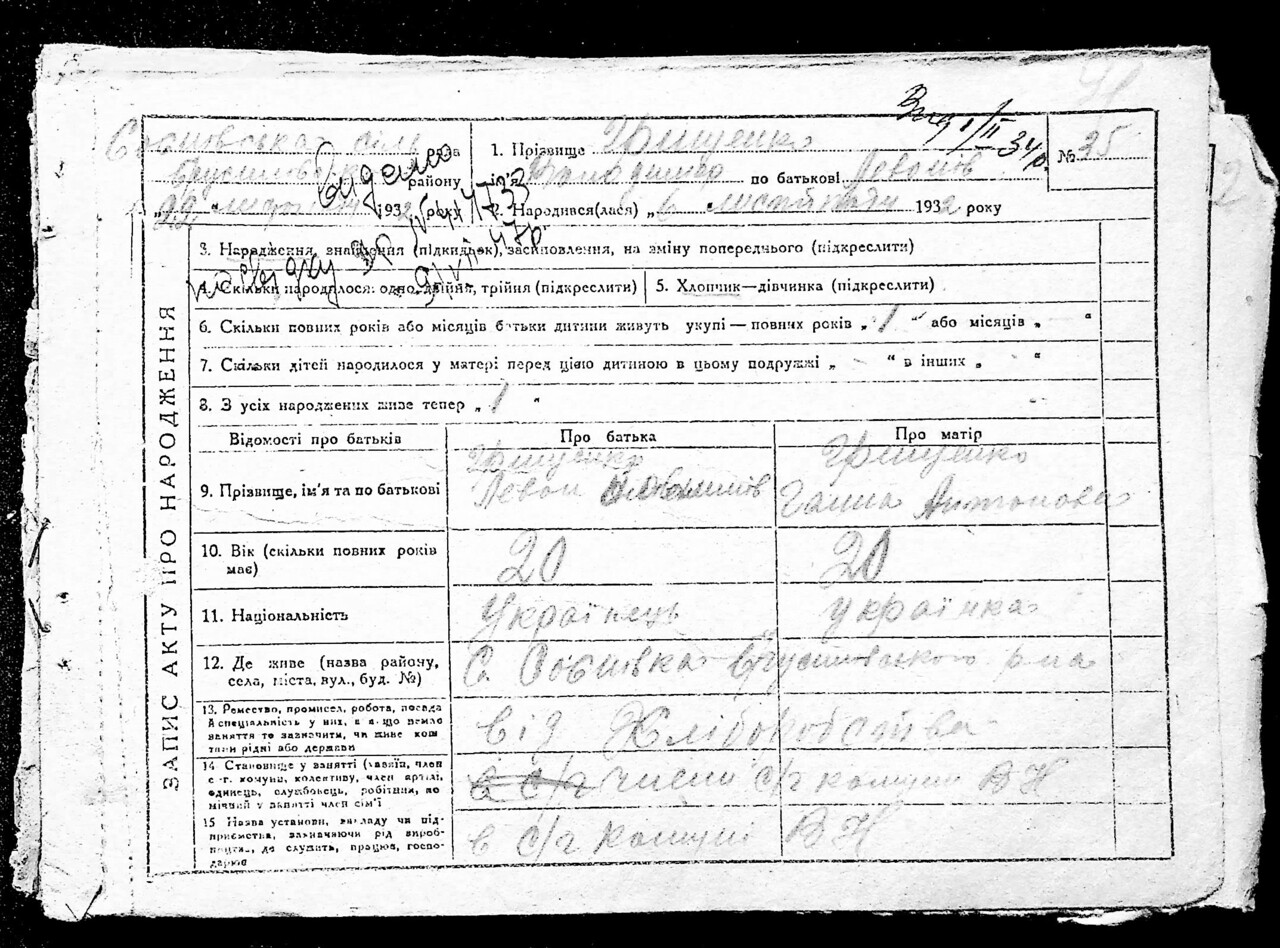 ЗАПИС АКТУ ПРО НАРОДЖЕННЯ
Соснівська сіль рада
району
„22“ 1932 року
Видано
1. Прізвище Грищенко
ім'я Володимир по батькові Левонів
2. Народився(лася) „6 листопада 1932 року
№ 25
3. Народження, знайдення (підкидьок), засиновлення, на зміну попереднього (підкреслити)
4. Скільки народилося: одно, двійня, трійня (підкреслити)
5. Хлопчик—дівчинка (підкреслити)
6. Скільки повних років або місяців батьки дитини живуть укупі — повних років „1“ або місяців „ “
7. Скільки дітей народилося у матері перед цією дитиною в цьому подружжі „ “ в інших „ “
8. З усіх народжених живе тепер „1“
Відомості про батьків
Про батька
Про матір
9. Прізвище, ім'я та по батькові
Грищенко
Левон
Грищенко
Ганна Антонова
10. Вік (скільки повних років має)
20
20
11. Національність
Українець
Українка
12. Де живе (назва району, села, міста, вул., буд. №)
с. Соснівка р-на
13. Ремество, промисел, робота, посада й спеціальність у них, а якщо немає заняття то зазначити, чи живе коштами рідні або держави
від Хліборобства
14 Становище у занятті (хазяїн, член с.-г. комуни, колективу, член артілі, одинець, службовець, робітник, помічний у занятті член сім'ї
в с/г член с/г комуни ВН
15 Назва установи, закладу чи підприємства, зазначаючи рід виробництва, де служить, працює, господарює
в с/г комуні ВН